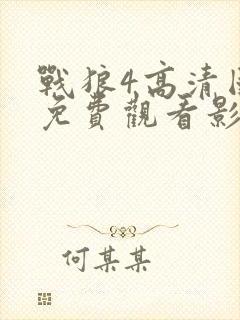 戰狼4高清
免費觀看影
何某某